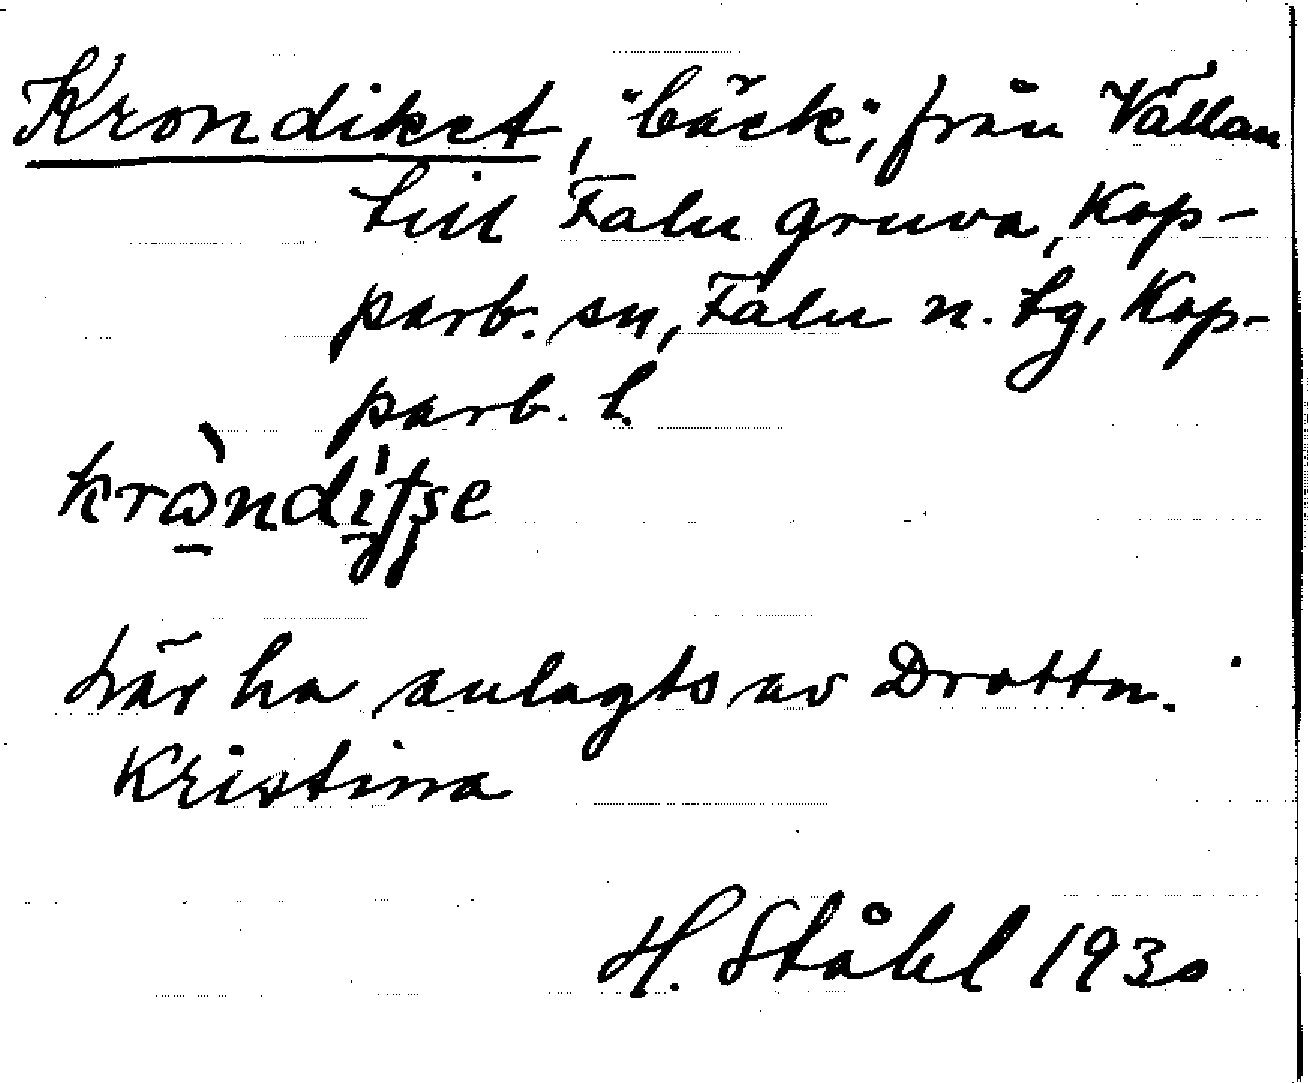 Krondiket, "bäck", från Vällan
till Falu gruva, Kop-
parb. sn, Falu n. tg, Kop-
parb. l.
krὼndit̯se
här ha anlagts av Drottn.
Kristina
H. Ståhl 1930